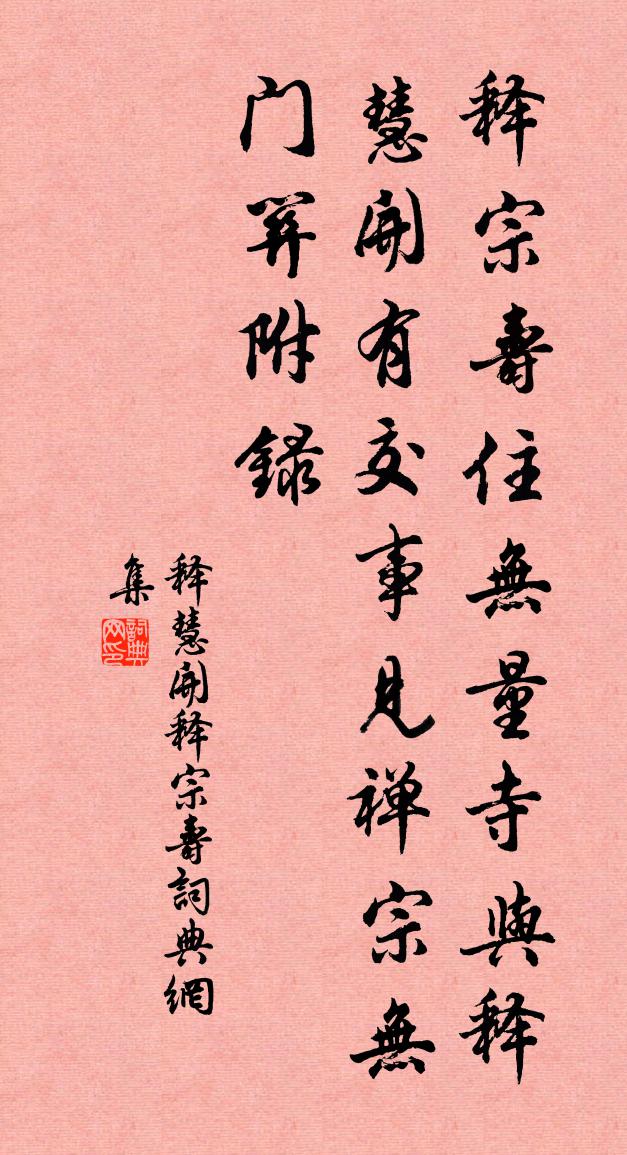 释宗壽住無量寺與释
慧開有交事見禅宗無
门关附録
释慧開释宗壽詞典網
集
詞典
网印